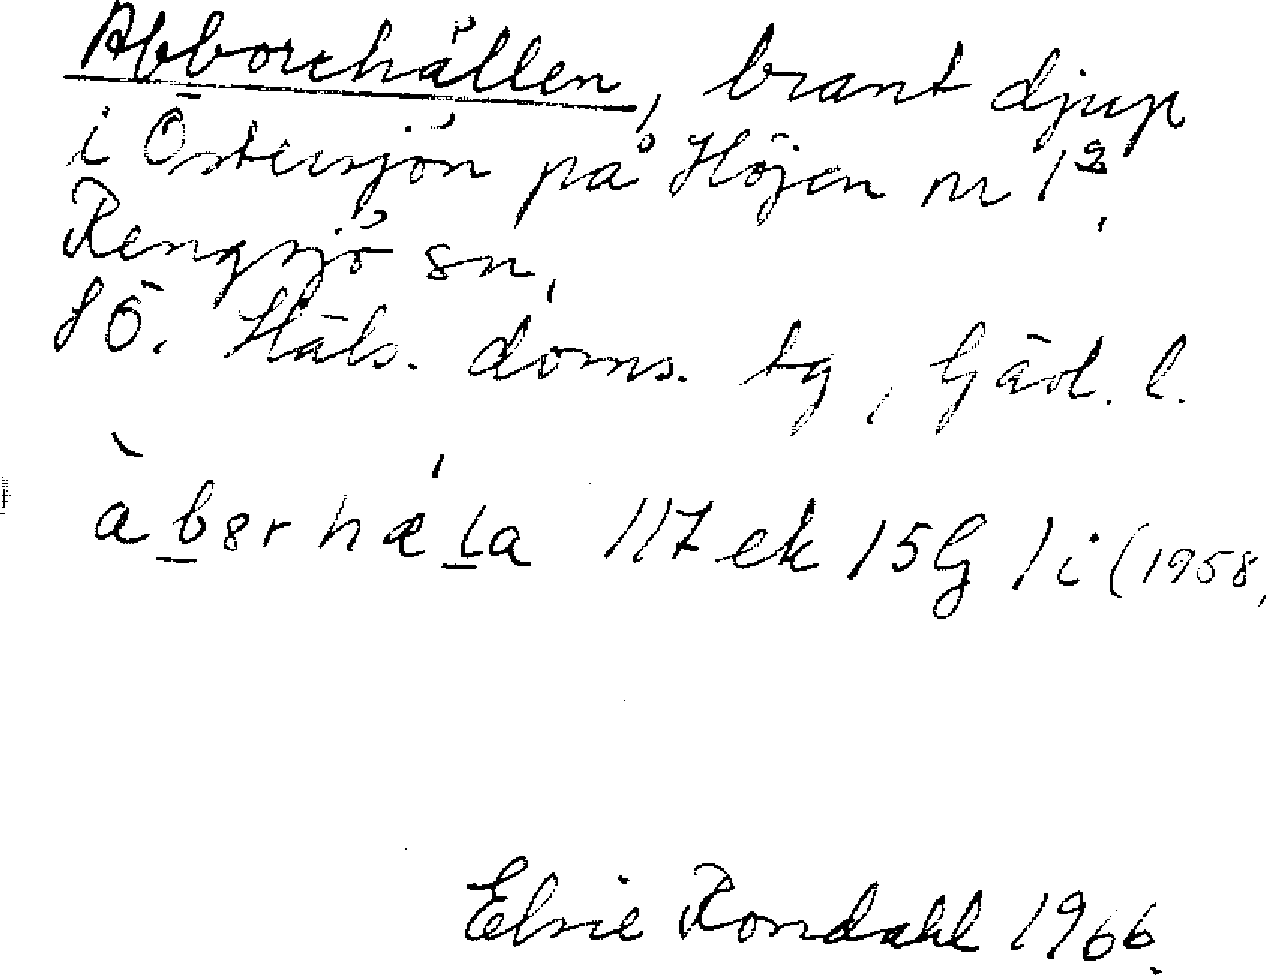 Abborehällen, brant djup
i Östersjön på Höjen nr 1²,
Rengsjö sn,
SÖ. Häls. doms. tg, Gävl. l.
àb8rhæ̀la 117 ek 15G 1i (1958,
Elvie Rondahl 1966.